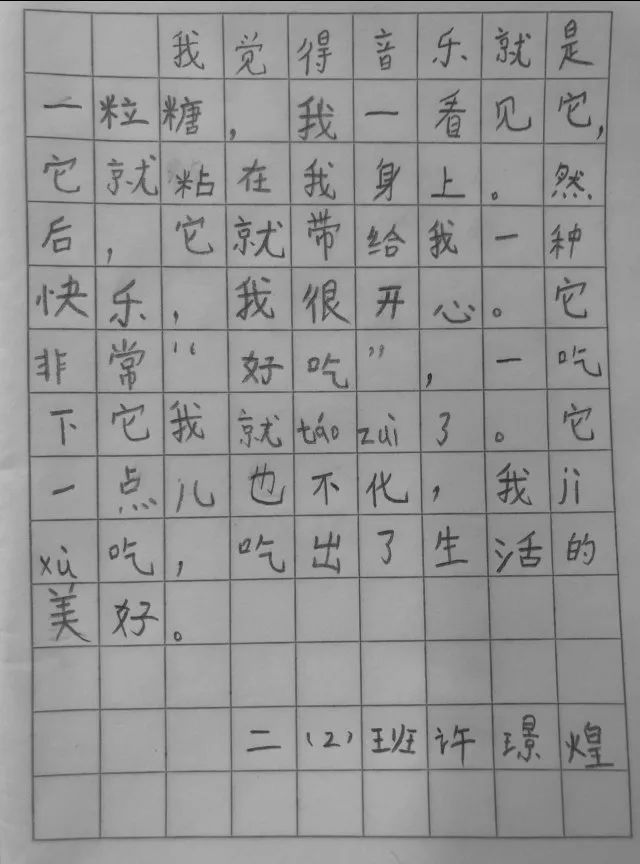 我觉得音乐就是
一粒糖，我一看见它，
它就粘在我身上。然
后，它就带给我一种
快乐，我很开心。它
非常“好吃”，一吃
下它我就táo zuì了。它
一点儿也不化，我jì
xù吃，吃出了生活的
美好。
二（2）班许璟煌